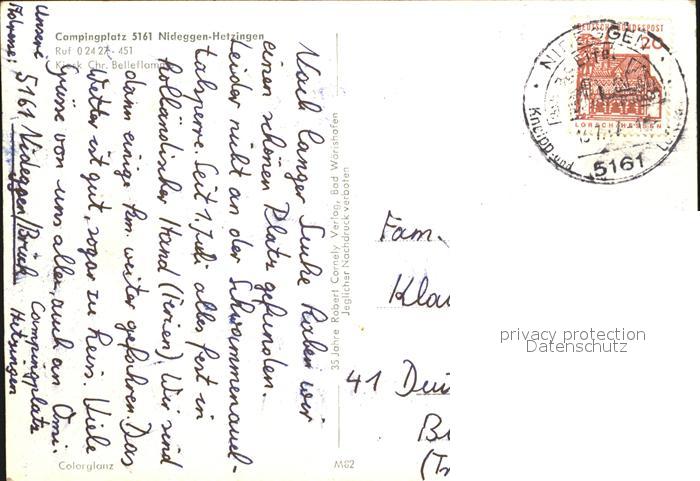 Campingplatz 5161 Nideggen-Hetzingen
Ruf 0 24 27 - 451
Kiosk Chr. Belleflamme
Nach langer Suche haben wir
einen schönen Platz gefunden.
Leider nicht an der Schwammenauel-
talsperre. Seit 1. Juli alles fest in
holländischer Hand (Ferien) Wir sind
dann einige km. weiter gefahren. Das
Wetter ist gut, sogar zu heiss. Viele
Grüsse von uns allen, auch an Omi.
Unsere
Adresse: 5161 Nideggen/Brück Campingplatz
Hetzingen
35 Jahre Robert Cornely Verlag, Bad Wörishofen
Jeglicher Nachdruck verboten
Colorglanz
M82
DEUTSCHE BUNDESPOST
20
LORSCH HESSEN
NIDEGGEN
5161
Kneipp- und
Fam.
Klau
41 Dui
privacy protection
Datenschutz